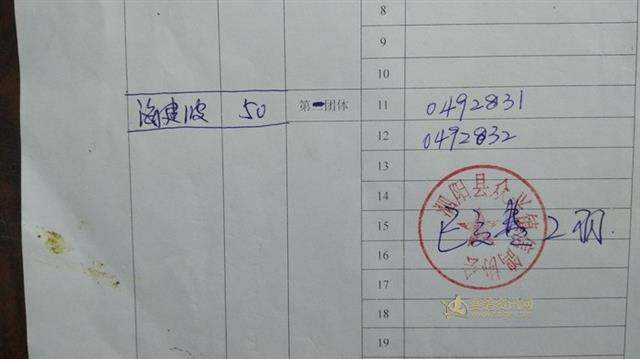 8
9
10
海建波 50 第一团体 11 0492831
12 0492832
13
14
15 已交费2羽
16
17
18
19
泗阳县众兴镇信鸽协会